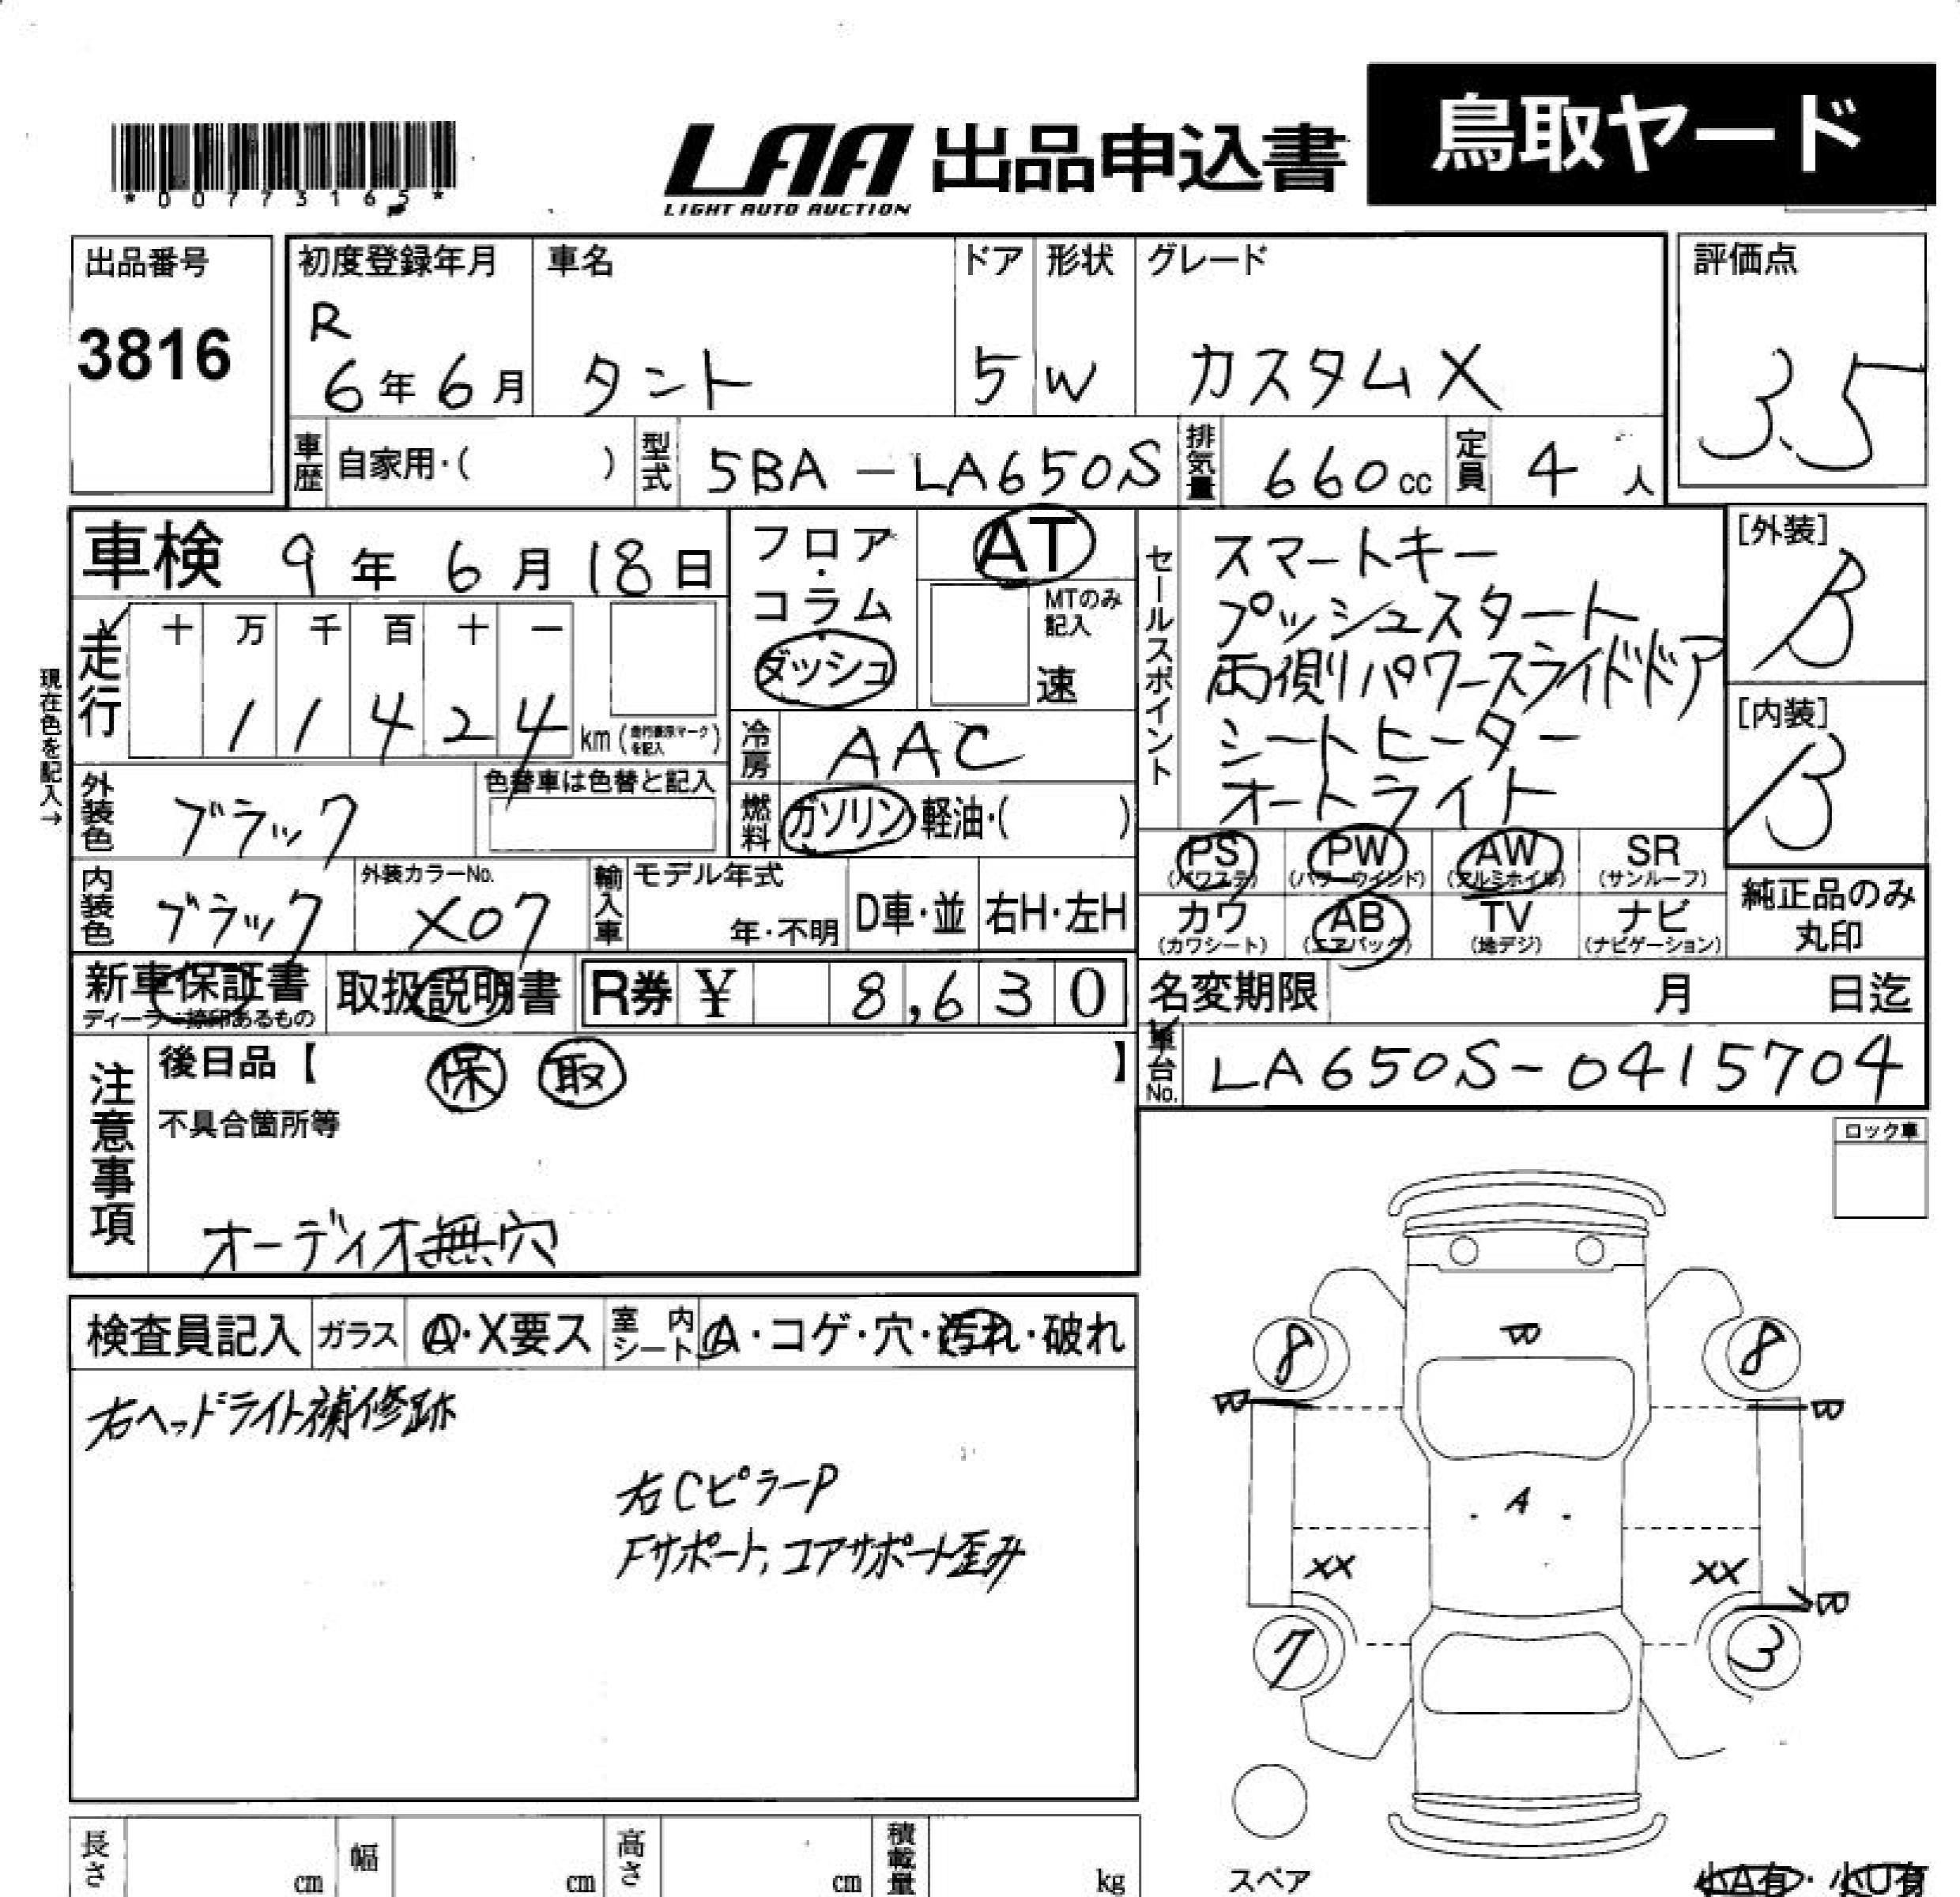 鳥取ヤード
*00773165*
LAA 出品申込書
LIGHT AUTO AUCTION
出品番号
3816
初度登録年月
R
6年6月
車名
タント
ドア
5
形状
W
グレード
カスタムX
評価点
3.5
車歴 自家用・( )
型式 5BA-LA650S
排気量 660cc
定員 4人
車検 9年6月18日
フロア・コラム・ダッシュ
AT
MTのみ記入
速
セールスポイント
スマートキー
プッシュスタート
両側パワースライドドア
シートヒーター
オートライト
[外装]
B
[内装]
B
現在色を記入→
走行
十 万 千 百 十 一
1 1 4 2 4 km (走行表示マークを記入)
冷房 AAC
外装色 ブラック
色替車は色替と記入
燃料 ガソリン・軽油・( )
内装色 ブラック
外装カラーNo.
X07
輸入車
モデル年式
年・不明
D車・並
右H・左H
PS (パワステ)
PW (パワーウインド)
AW (アルミホイル)
SR (サンルーフ)
カワ (カワシート)
AB (エアバッグ)
TV (地デジ)
ナビ (ナビゲーション)
純正品のみ丸印
新車保証書
ディーラー捺印あるもの
取扱説明書
R券 ¥ 8,630
名変期限 月 日迄
車台No. LA650S-0415704
注意事項
後日品【 保 取 】
不具合箇所等
オーディオ無穴
ロック車
検査員記入
ガラス A・X要ス
室内シート A・コゲ・穴・汚れ・破れ
右ヘッドライト補修跡
右CピラーP
Fサポート,コアサポート歪み
B
8 8
B B
A
XX XX
B
7 3
スペア
長さ cm
幅 cm
高さ cm
積載量 kg
小A有・小U有